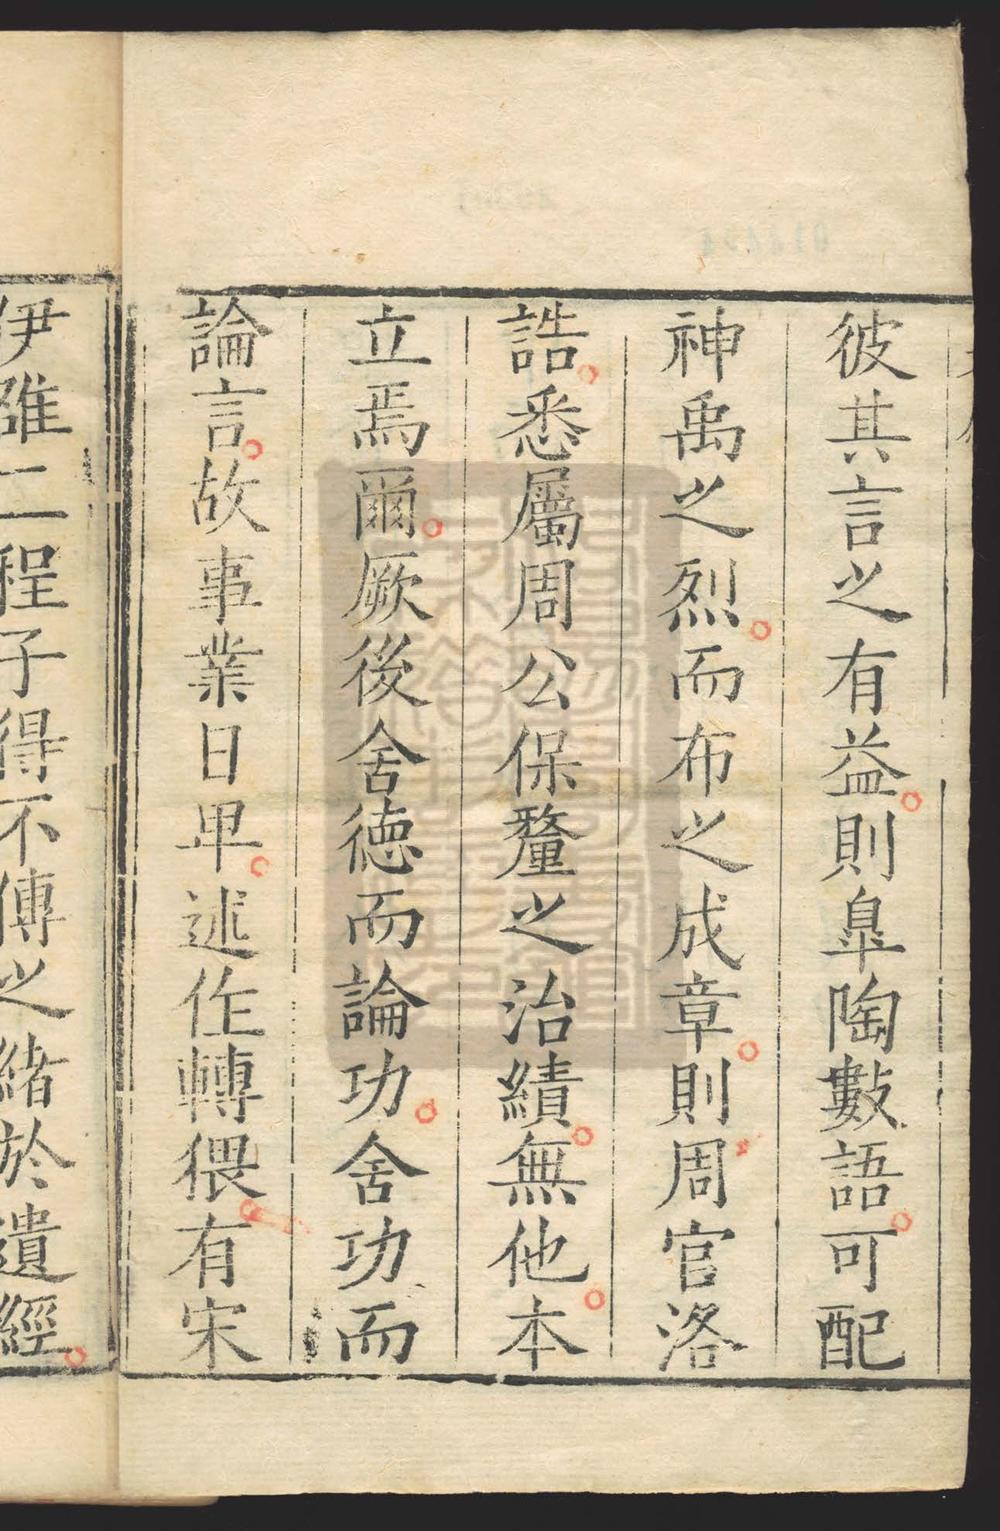 彼其言之有益則臯陶數語可配
神禹之烈而布之成章則周官洛
誥悉屬周公保釐之治績無他本
立焉爾厥後舍德而論功舍功而
論言故事業日卑述作轉猥有宋
伊雒二程子得不傳之緒於遺經